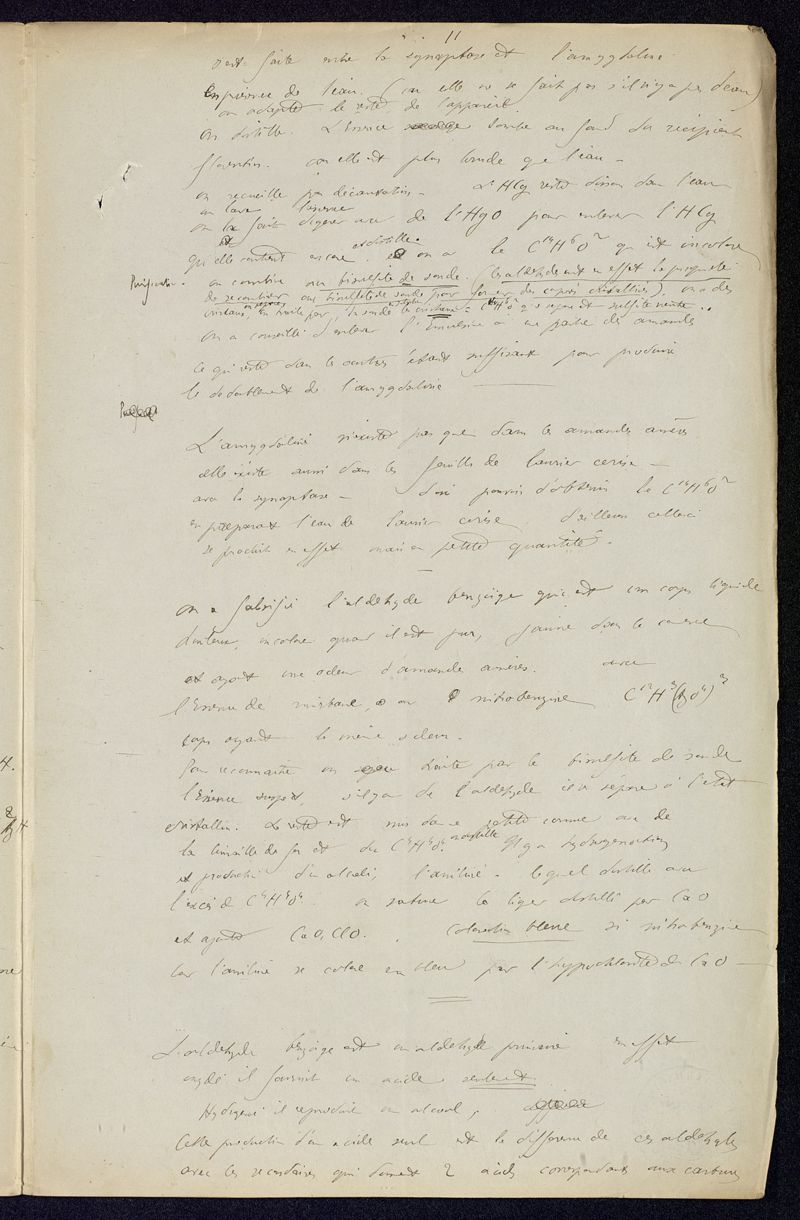 11
s'est faite entre la synaptase et l'amygdaline
en présence de l'eau. (car elle ne se fait pas s'il n'y a pas d'eau)
on adapte le reste de l'appareil
On distille. L'Essence tombe au fond du récipient
florentin. car elle est plus lourde que l'eau -
on recueille par décantation - L'HCy reste dissous dans l'eau
on lave l'essence
on la fait digérer avec de l'HgO pour enlever l'HCy
qu'elle contient encore. et distille on a le C14H6O2 qui est incolore
Purification. on combine au bisulfite de soude. (les aldehydes ont en effet la propriété
de se combiner au bisulfite de soude pour former des corps cristallisés), on a des
cristaux, on traite par la soude les cristaux C14H6O2 se séparent sulfite reste..
On a conseillé d'enlever l'Essence à une partie des amandes
ce qui reste dans les autres étant suffisant pour produire
le dédoublement de l'amygdaline
L'amygdaline n'existe pas que dans les amandes amères
elle existe aussi dans les feuilles de laurier cerise -
avec la synaptase - d'où pouvoir d'obtenir le C14H6O2
en préparant l'eau de laurier cerise d'ailleurs celle ci
se produit en effet mais en petite quantité -
On a falsifié l'aldehyde benzoïque qui est un corps liquide
incolore quand il est pur, jaune dans le commerce
et ayant une odeur d'amandes amères. avec
l'Essence de mirbane, ou nitrobenzine C12H5(AzO4)
corps ayant la même odeur.
Pour reconnaître on traite par le bisulfite de soude
l'Essence suspecte, s'il y a de l'aldehyde il se sépare à l'état
cristallin. Le reste est mis dans petite cornue avec de
la limaille de fer et du C4H4O4 on distille Il y a hydrogénation
et production d'un alcali, l'aniline. lequel distille avec
l'excès de C4H4O4. on sature la liqueur distillée par CaO
et ajoute CaO,ClO. Coloration bleue si nitrobenzine
car l'aniline se colore en bleu par l'hypochlorite de CaO -
L'aldehyde benzoïque est un aldehyde primaire en effet
oxydé il fournit un acide seulement
Hydrogéné il reproduit un alcool,
Cette production d'un acide seul est la différence de ces aldehydes
avec les secondaires qui donnent 2 acides correspondant aux carbures